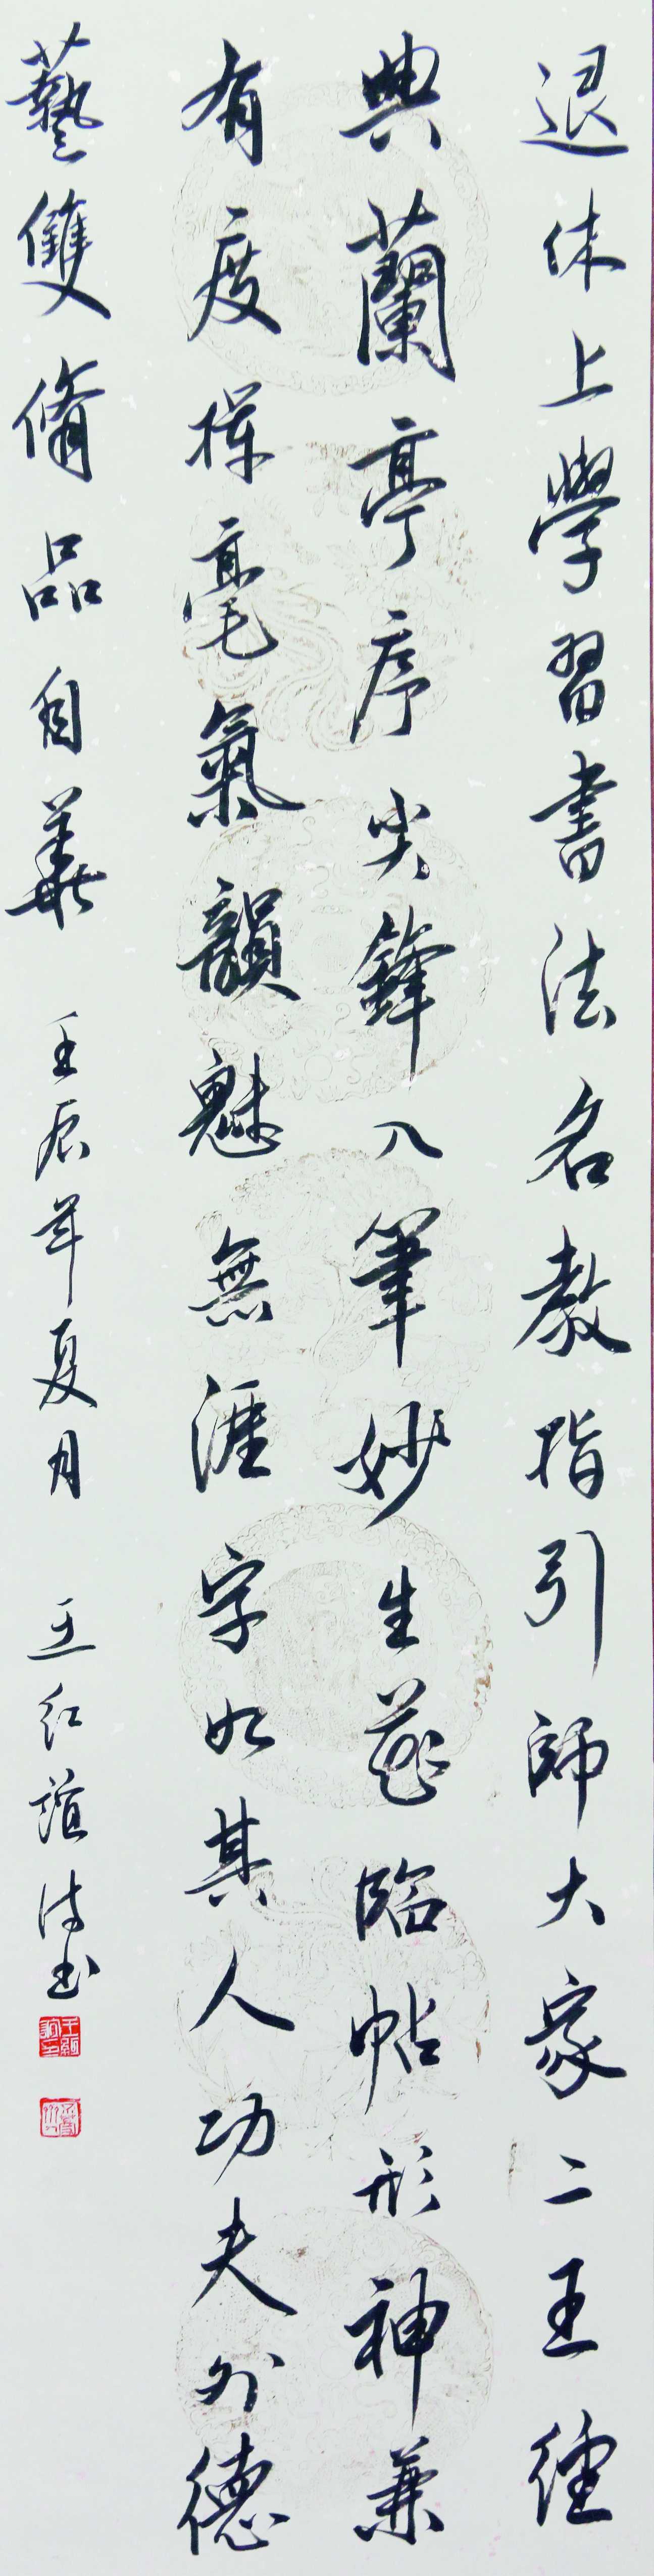 退休上學習書法名教指引師大家二王經
典蘭亭序尖鋒入筆妙生花臨帖形神兼
有度揮毫氣韻魅無涯字如其人功夫外德
藝雙脩品自華
壬辰年夏月
王紅誼詩書